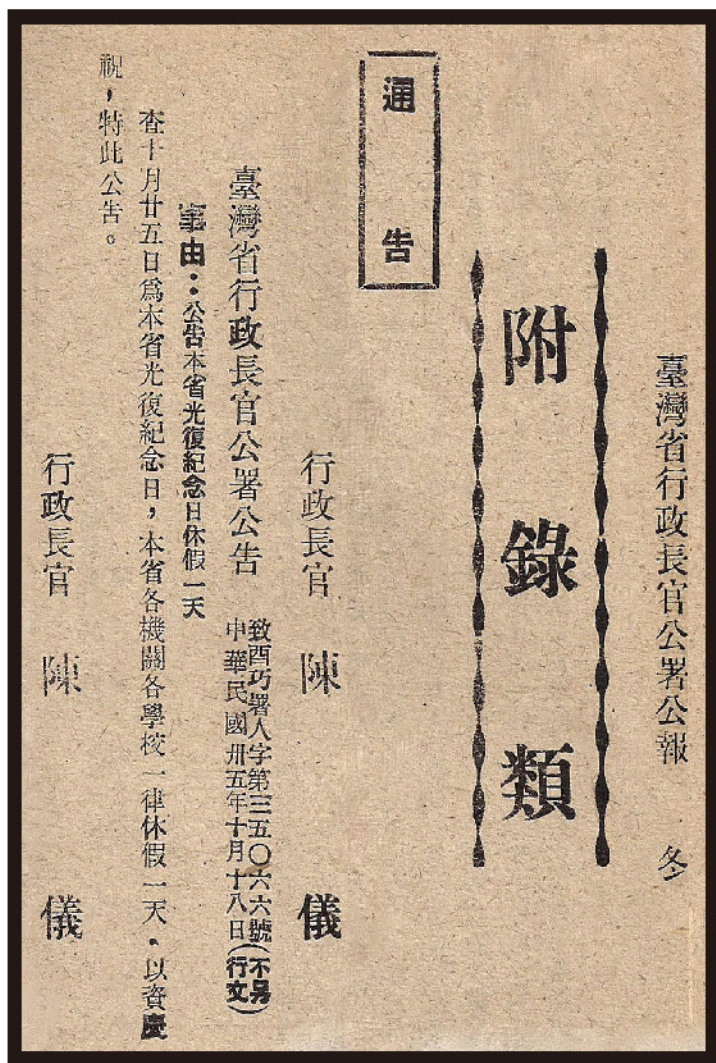 臺灣省行政長官公署公報 冬
附錄類
通告
行政長官 陳 儀
臺灣省行政長官公署公告
致酉巧署人字第三五〇六六號(不另
中華民國卅五年十月十八日 行文)
事由:公告本省光復紀念日休假一天
查十月廿五日爲本省光復紀念日,本省各機關各學校一律休假一天。以資慶
祝,特此公告。
行政長官 陳 儀